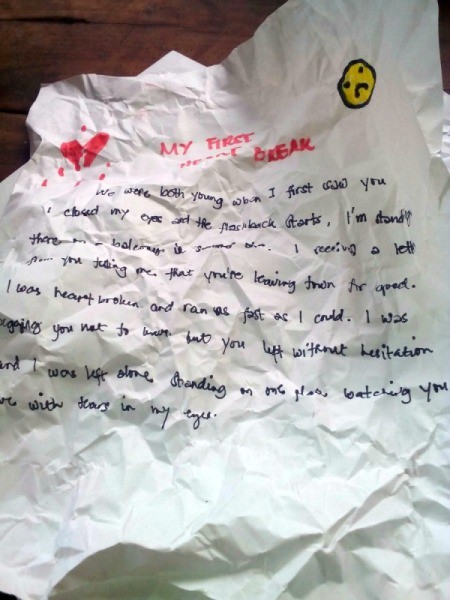 MY FIRST
HEART BREAK
We were both young when I first saw you
I closed my eyes and the flashback starts, I'm standing
there on a balcony in summer air. I receive a lett
from you telling me that you're leaving town for good.
I was heart broken and ran as fast as I could. I was
begging you not to leave but you left without hesitation
and I was left alone standing on one place watching you
with tears in my eyes.